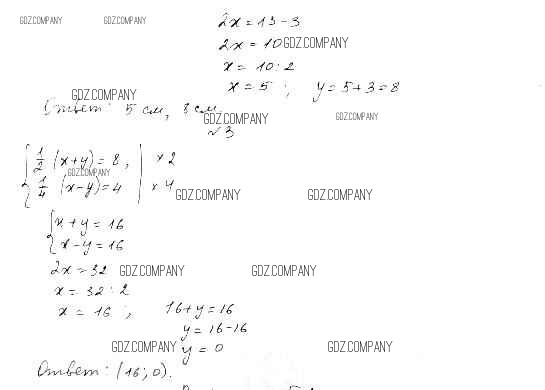 GDZ.COMPANY GDZ.COMPANY 2x = 13 - 3
2x = 10 GDZ.COMPANY
x = 10 : 2
x = 5 ; y = 5 + 3 = 8
GDZ.COMPANY
Ответ: 5 см, 8 см.
GDZ.COMPANY GDZ.COMPANY
№3
{ 1/2 (x+y) = 8, | × 2
GDZ.COMPANY
{ 1/4 (x-y) = 4 | × 4
GDZ.COMPANY GDZ.COMPANY
{ x + y = 16
{ x - y = 16
2x = 32 GDZ.COMPANY GDZ.COMPANY
x = 32 : 2
x = 16 ; 16 + y = 16
y = 16 - 16
GDZ.COMPANY y = 0 GDZ.COMPANY
Ответ: (16; 0).